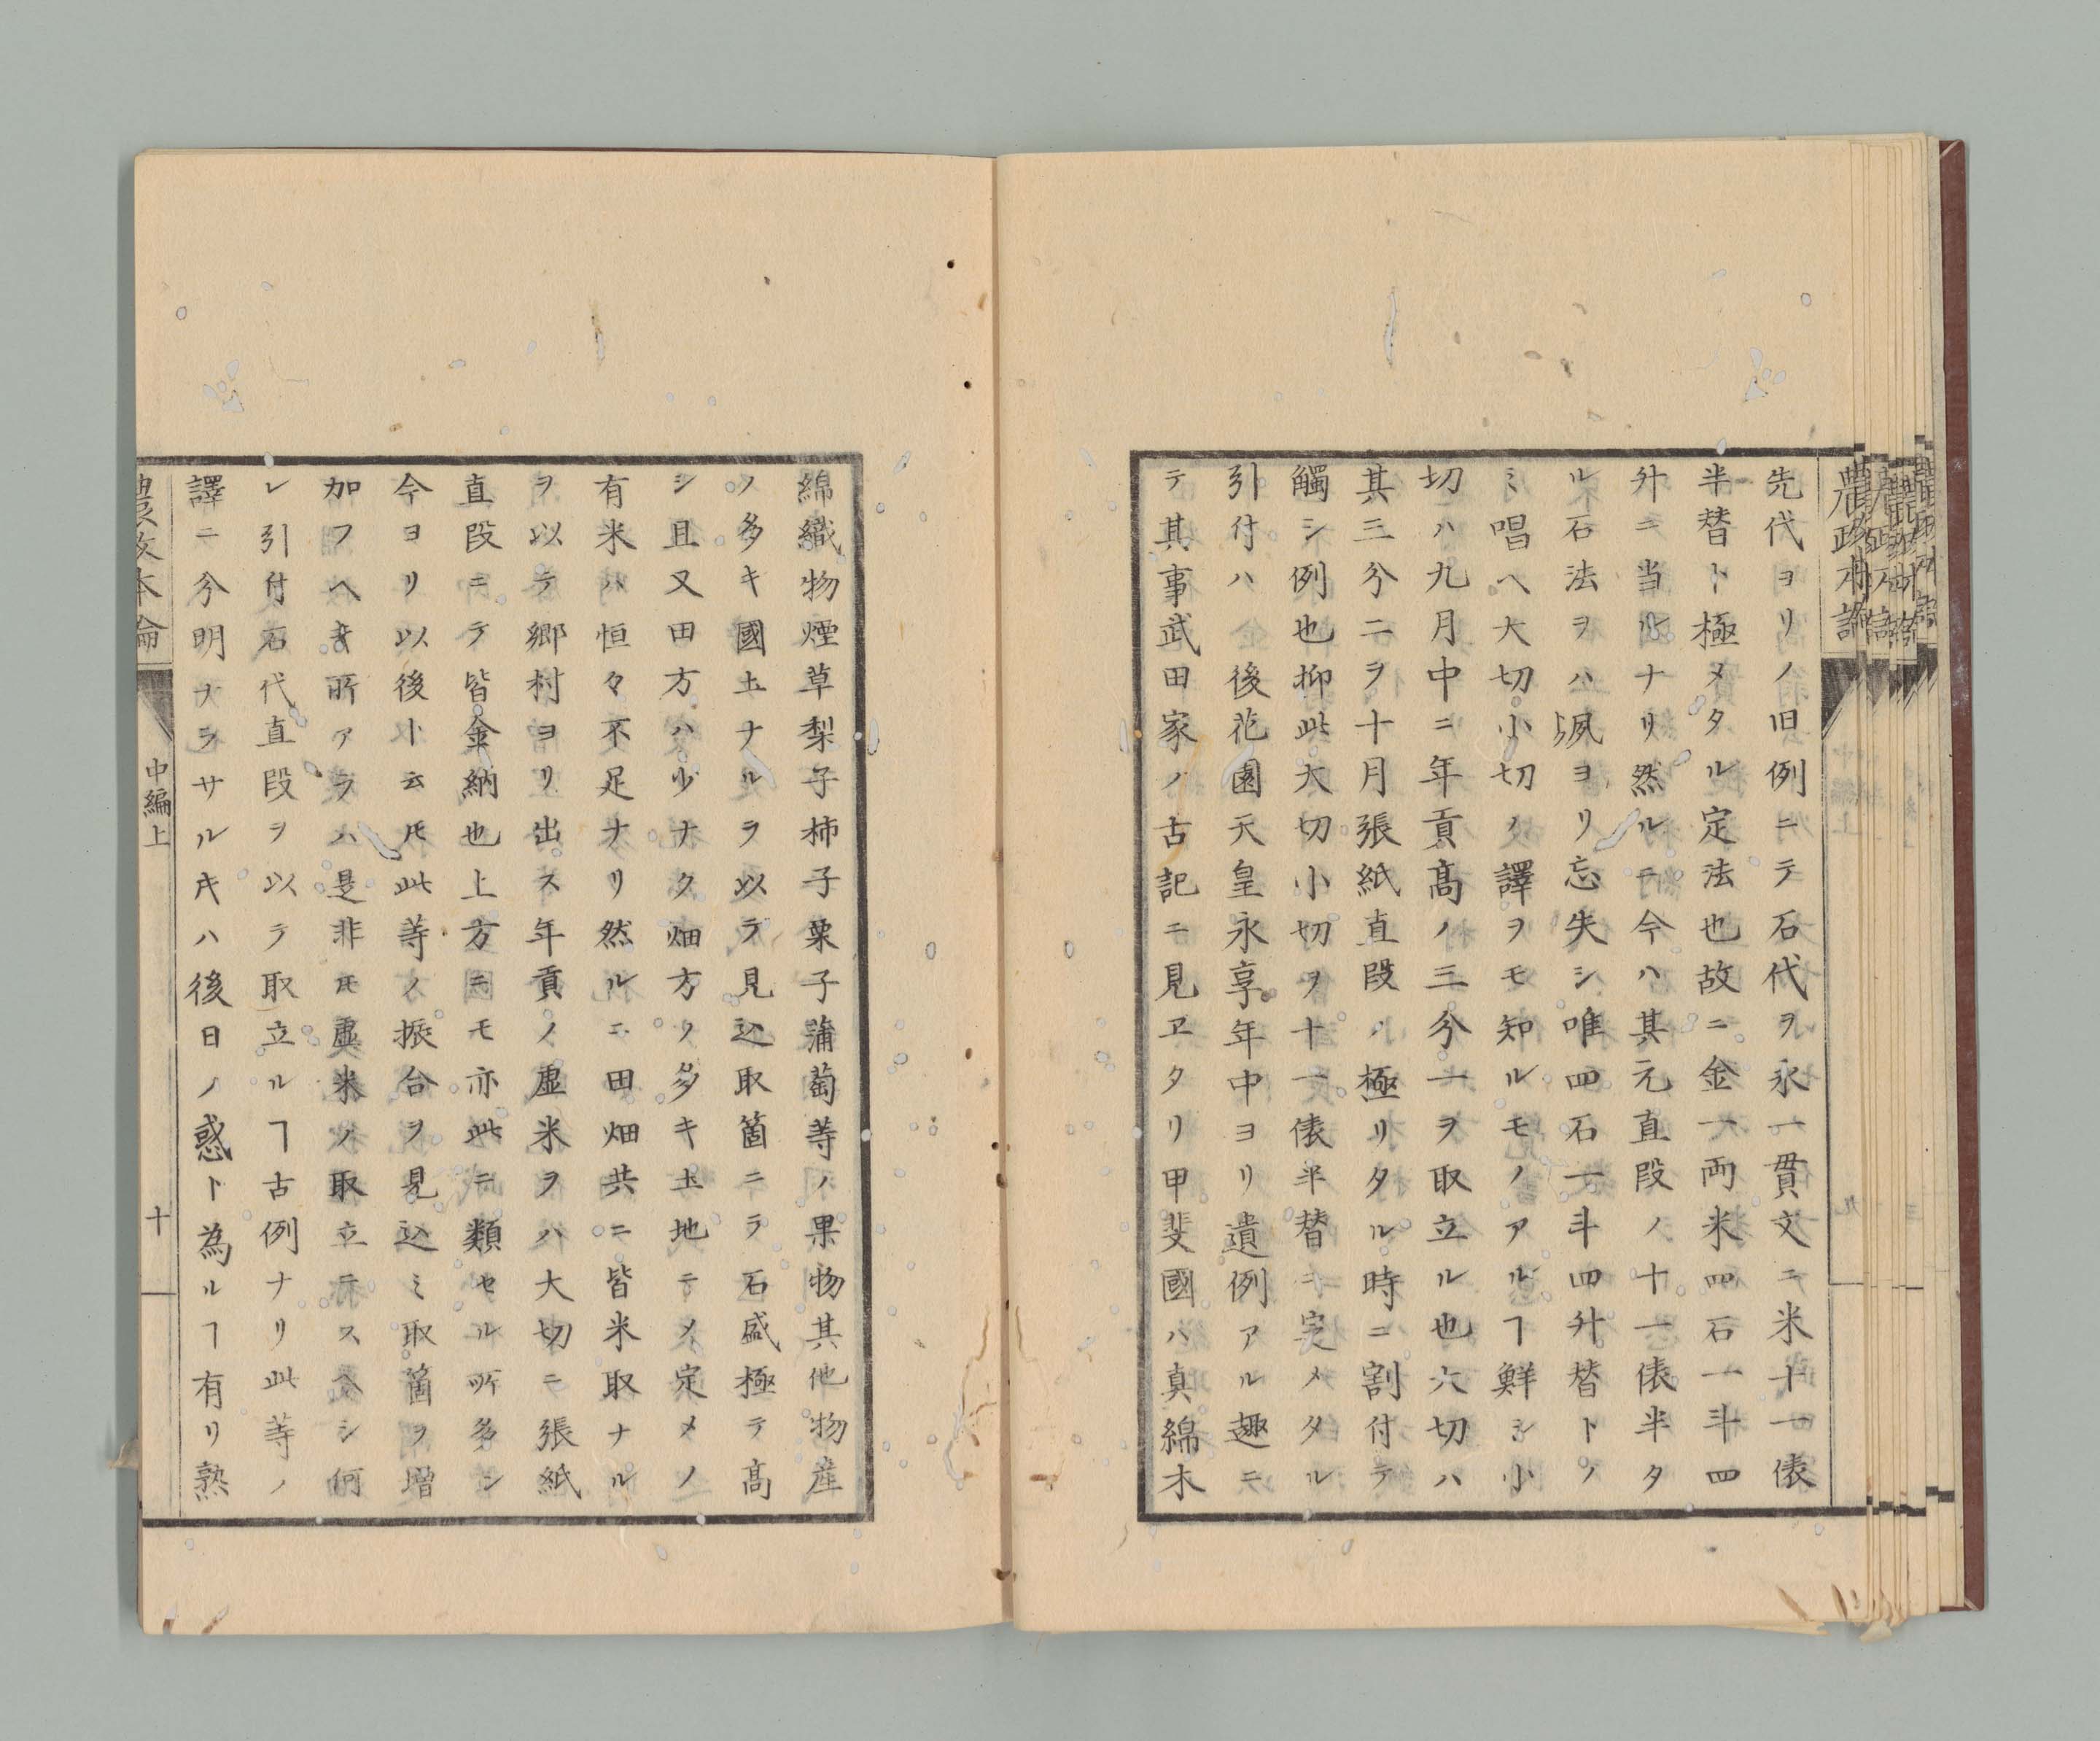 先代ヨリノ旧例ニテ石代ヲ永一貫文ニ米十一俵
半替ト極メタル定法也故ニ金一両米四石一斗四
升ニ当ルナリ然ルニ今ハ其元直段ノ十一俵半タ
ル石法ヲハ夙ヨリ忘失シ唯四石一斗四升替トノ
ミ唱ヘ大切小切ノ譯ヲモ知ルモノアルヿ鮮シ小
切ハ九月中ニ年貢髙ノ三分一ヲ取立ル也大切ハ
其三分二ヲ十月張紙直段ノ極リタル時ニ割付テ
觸シ例也抑此大切小切ヲ十一俵半替ニ定メタル
引付ハ後花園天皇永享年中ヨリ遺例アル趣ニ
テ其事武田家ノ古記ニ見ヱタリ甲斐國ハ真綿木
綿織物煙草梨子柿子栗子蒲萄等ノ果物其他物産
ノ多キ國土ナルヲ以テ見込取箇ニテ石盛極テ髙
シ且又田方ハ少ナク畑方ノ多キ土地ニテメ定メノ
有米ハ恒々不足ナリ然ルニ田畑共ニ皆米取ナル
ヲ以テ郷村ヨリ出ス年貢ノ虚米ヲハ大切ニ張紙
直段ニテ皆金納也上方ニモ亦此ニ類セル所多シ
今ヨリ以後ト云𪜈此等ノ振合ヲ見込ミ取箇ヲ増
加フヘキ所アラハ是非𪜈虚米ノ取立ニスヘシ何
レ引付石代直段ヲ以テ取立ルヿ古例ナリ此等ノ
譯ニ分明ナラサル𪜈ハ後日ノ惑ト為ルヿ有リ熟
農政本論
中編上
十